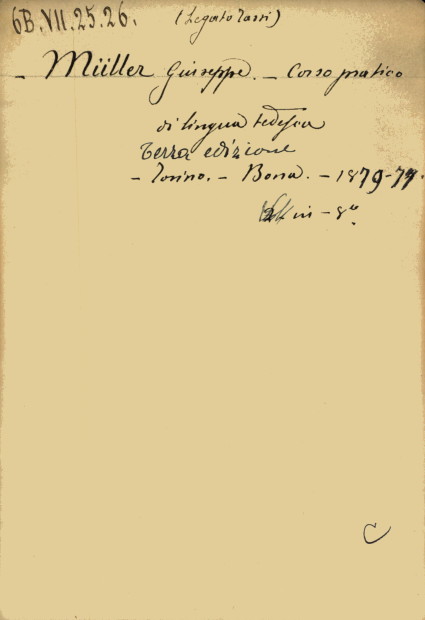 6B.VII.25.26.
(Legato Tassi)
- Müller Giuseppe. - Corso pratico
di lingua tedesca
Terza edizione
- Torino. - Bona. - 1879-77.
in - 8º.
C